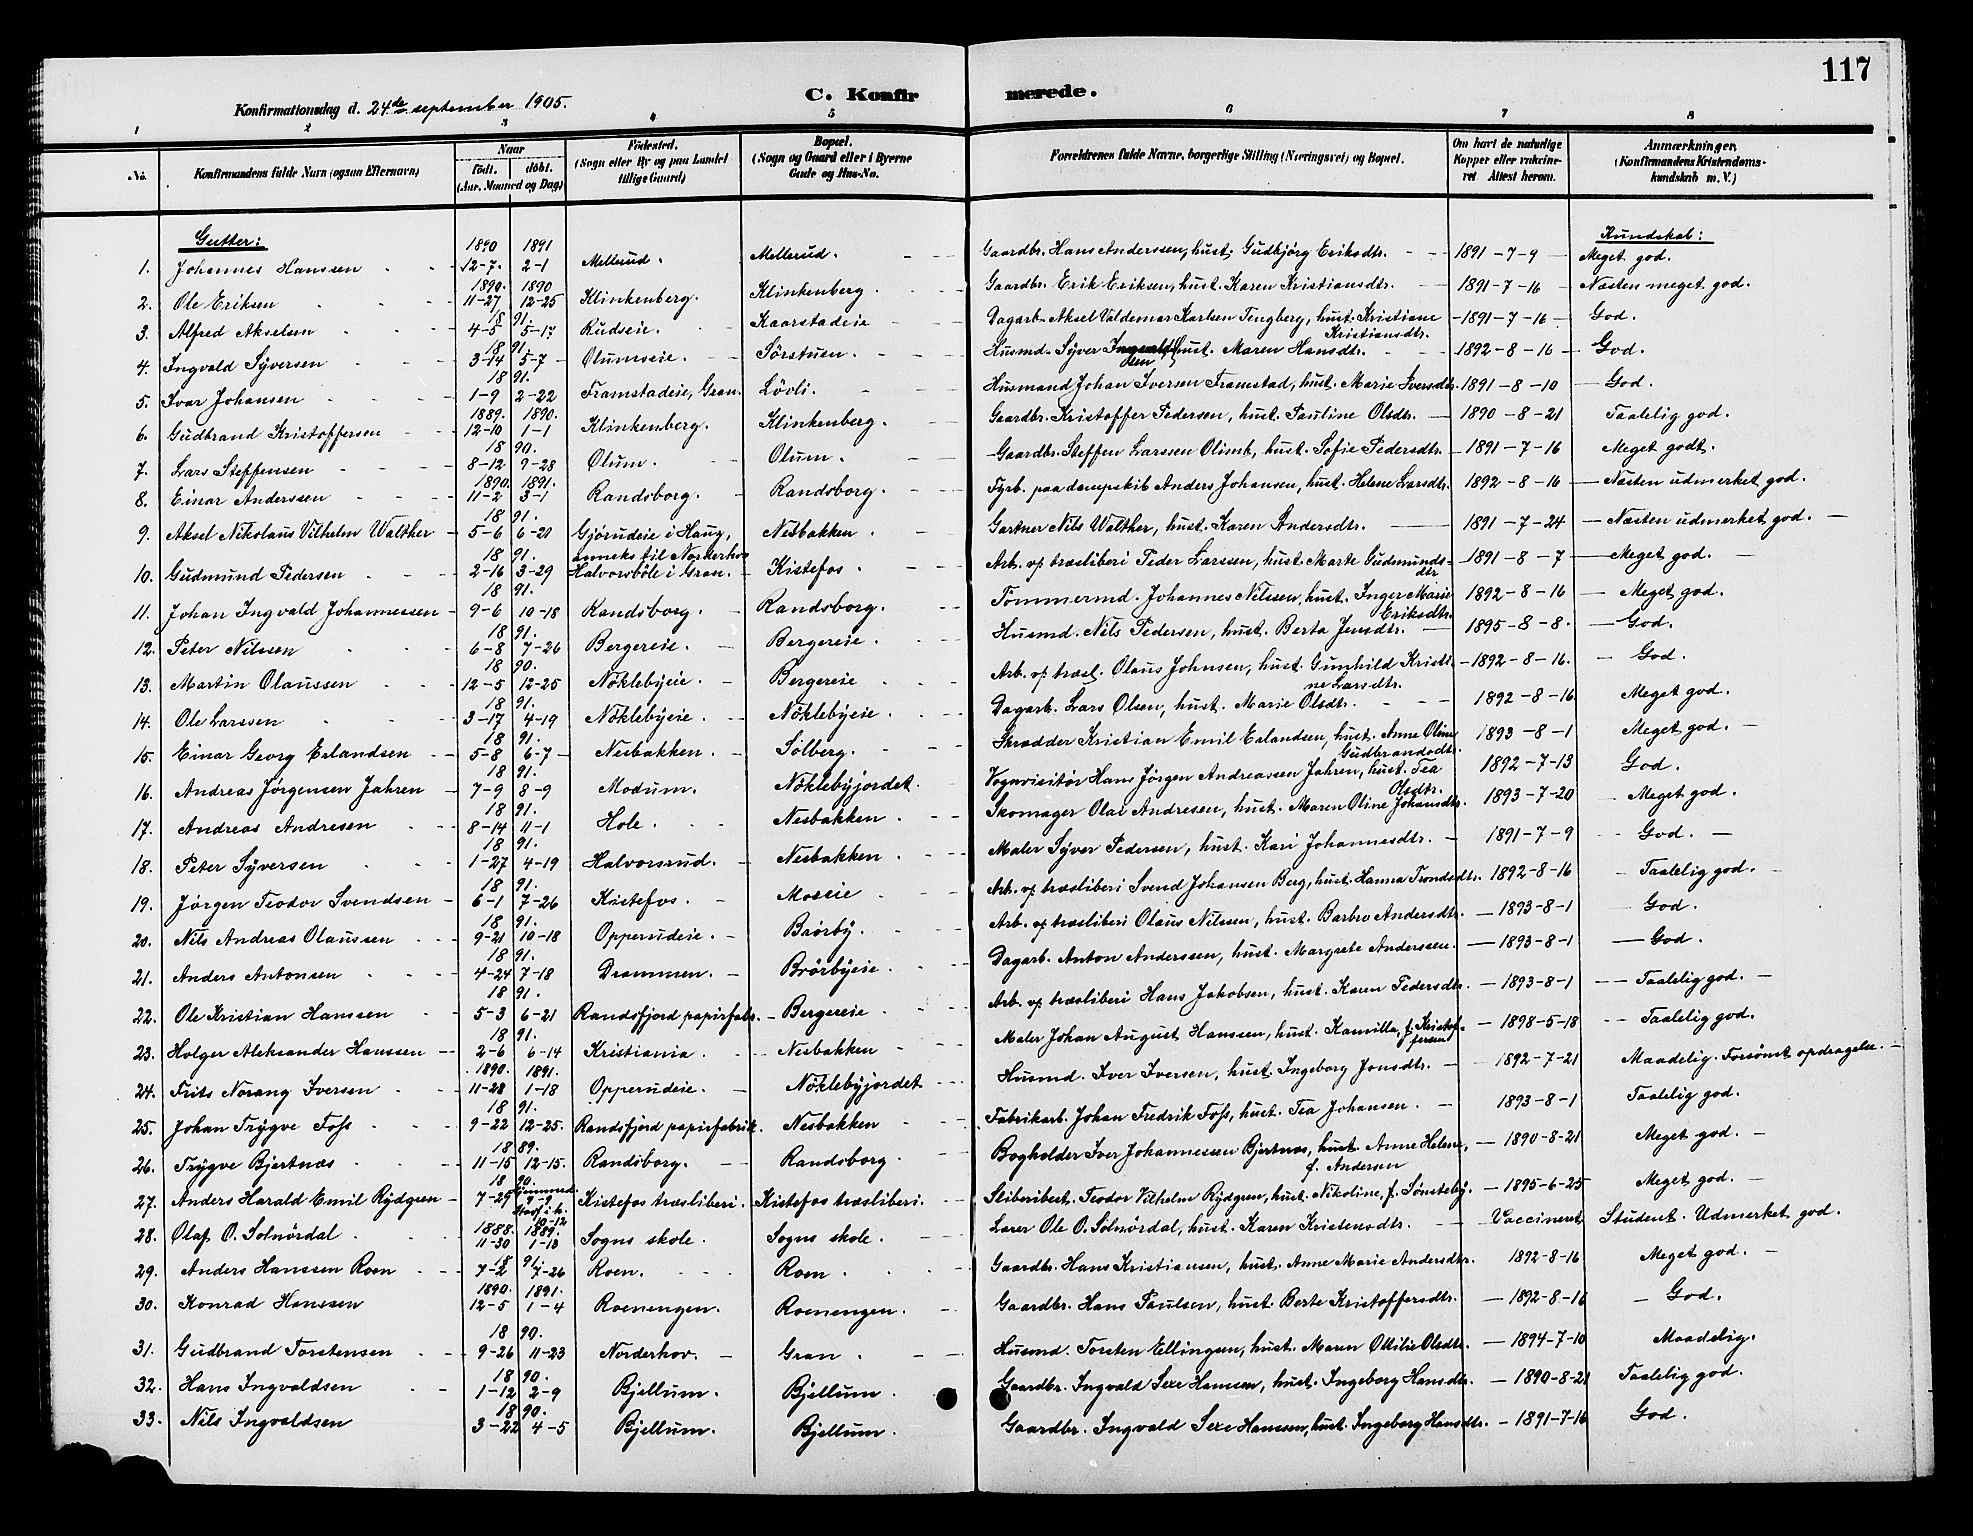 117
Konfirmationsdag d. 24de september 1905.
C. Konfirmerede.
1 2 3 4 5 6 7 8
No. Konfirmandens fulde Navn (ogsaa Efternavn) Naar født. døbt. (Aar, Maaned og Dag) Fødested. (Sogn eller By og paa Landet tillige Gaard) Bopæl. (Sogn og Gaard eller i Byerne Gade og Hus-No. Forældrenes fulde Navne, borgerlige Stilling (Næringsvei) og Bopæl. Om havt de naturlige Kopper eller vakcineret Attest herom. Anmærkninger. (Konfirmandens Kristendomskundskab m. V.)
Gutter: Kundskab:
1. Johannes Hanssen 1890 12-7. 1891 2-1 Mellerud. Mellerud. Gaardbr. Hans Anderssen, hust. Gudbjørg Eriksdtr. 1891-7-9 Meget god.
2. Ole Eriksen 1890. 11-27 1890 12-25 Klinkenberg. Klinkenberg. Gaardbr. Erik Eriksen, hust. Karen Kristiansdtr. 1891-7-16 Næsten meget god.
3. Alfred Akselsen 18 91. 4-5 5-17 Rudseie. Kaarstadeie Dagarb. Aksel Valdemar Karlsen Tingberg, hust. Kristiane Kristiansdtr. 1891-7-16 God.
4. Ingvald Syversen 18 91. 3-14 5-7 Olumseie. Sørstuen. Husmd. Syver hust. Maren Hansdtr. 1892-8-16 God.
5. Ivar Johansen 18 91. 1-9 2-22 Framstadeie, Gran. Løvli. Husmand Johan Iversen Framstad, hust. Marie Iversdtr. 1891-8-10 God.
6. Gudbrand Kristoffersen 1889. 12-10 1890. 1-1 Klinkenberg. Klinkenberg. Gaardbr. Kristoffer Pedersen, hust. Pauline Olsdtr. 1890-8-21 Taalelig god.
7. Lars Steffensen 18 90. 8-12 9-28 Olum. Olum. Gaardbr. Steffen Larssen Olimb, hust. Sofie Pedersdtr. 1891-7-16 Meget godt.
8. Einar Anderssen 1890. 11-2 1891. 3-1 Randsborg. Randsborg. Fyrb. paa dampskib Anders Johansen, hust. Helene Larsdtr. 1892-8-16 Næsten udmerket god.
9. Aksel Nikolaus Vilhelm Walther 18 91. 5-6 6-21 Gjørudeie i Haug, anneks til Norderhov Nesbakken. Gartner Nils Walther, hust. Karen Andersdtr. 1891-7-24 Næsten udmerket god.
10. Gudmund Pedersen 18 91. 2-16 3-29 Halvorsbøle i Gran. Kistefos. Arb. v/ træsliberi Peder Larssen, hust. Marte Gudmundsdtr 1891-8-7 Meget god.
11. Johan Ingvald Johannessen 18 91. 9-6 10-18 Randsborg. Randsborg. Tømmermd. Johannes Nilssen, hust. Inger Marie Eriksdtr. 1892-8-16 Meget god.
12. Peter Nilssen 18 91. 6-8 7-26 Bergereie. Bergereie. Husmd. Nils Pedersen, hust. Berta Jensdtr. 1895-8-8. God.
13. Martin Olaussen 18 90. 12-5 12-25 Nøklebyeie. Bergereie Arb. v/ træsl. Olaus Johnsen, hust. Gunhild Kristine Larsdtr. 1892-8-16. God.
14. Ole Larssen 18 91. 3-17 4-19 Nøklebyeie. Nøklebyeie. Dagarb. Lars Olsen, hust. Marie Olsdtr. 1892-8-16 Meget god.
15. Einar Georg Erlandsen 18 91. 5-8 6-7 Nesbakken. Solberg. Skrædder Kristian Emil Erlandsen, hust. Anne Oline Gudbrandsdtr. 1893-8-1 Meget god.
16. Andreas Jørgensen Jahren 18 91. 7-9 8-9 Modum. Nøklebyjordet. Vognvisitør Hans Jørgen Andreassen Jahren, hust. Tea Olsdtr. 1892-7-13 God.
17. Andreas Andresen 18 91. 8-14 11-1 Hole. Nesbakken. Skomager Olai Andresen, hust. Maren Oline Johansdtr. 1893-7-20 Meget god.
18. Peter Syversen 18 91. 1-27 4-19 Halvorsrud. Nesbakken Maler Syver Pedersen, hust. Kari Johannesdtr. 1891-7-9 God.
19. Jørgen Teodor Svendsen 18 91. 6-1 7-26 Kistefos. Moseie Arb. v/ træsliberi Svend Johansen Berg, hust. Hanna Trondsdtr. 1892-8-16 Taalelig god.
20. Nils Andreas Olaussen 18 91. 9-21 10-18 Opperudeie. Brørby. Arb. v/ træsliberi Olaus Nilssen, hust. Barbro Andersdtr. 1893-8-1 God.
21. Anders Antonsen 18 91. 4-24 7-18 Drammen. Brørbyeie. Dagarb. Anton Anderssen, hust. Margrete Anderssen. 1893-8-1 God.
22. Ole Kristian Hanssen 18 91. 5-3 6-21 Randsfjord papirfabr. Bergereie Arb. v/ træsliberi Hans Jakobsen, hust. Karen Pedersdtr. 1893-8-1 Taalelig god.
23. Holger Aleksander Hanssen 18 91. 2-6 6-14 Kristiania. Nesbakken Maler Johan August Hanssen, hust. Kamilla, f. Kristoffersen 1898-5-18 Taalelig god.
24. Frits Norang Iversen 1890. 11-28 1891. 1-18 Opperudeie. Nøklebyjordet Husmd. Iver Iversen, hust. Ingeborg Jonsdtr. 1892-7-21 Maadelig. Forsømt opdragelse.
25. Johan Trygve Foss 18 91. 9-22 12-25. Randsfjord papirfabrik. Nesbakken Fabrikarb. Johan Fredrik Foss, hust. Tea Johansen. 1893-8-1 Taalelig god.
26. Trygve Bjertnæs 18 89. 11-15 12-15. Randsborg. Randsborg. Bogholder Iver Johannessen Bjertnæs, hust. Anne Helene, f. Andersen 1890-8-21 Meget god.
27. Anders Harald Emil Rydgren 18 90. 7-29 Kistefos træsliberi. Kistefos træsliberi. Sliberibest. Teodor Vilhelm Rydgren, hust. Nikoline, f. Sønsteby. 1895-6-25 Meget god.
28. Olaf O. Solnørdal 1888. 11-30 1889. 1-13 Sogns skole. Sogns skole. Lærer Ole O. Solnørdal, hust. Karen Kristensdtr. Vaccineret Student. Udmerket god.
29. Anders Hanssen Roen 18 91. 7-2 7-26 Roen. Roen. Gaardbr. Hans Kristiansen, hust. Anne Marie Andersdtr. 1892-8-16 Meget god.
30. Konrad Hanssen 1890. 12-5 1891. 1-4 Roenengen. Roenengen. Gaardbr. Hans Paulsen, hust. Berte Kristoffersdtr. 1892-8-16 God.
31. Gudbrand Torstensen 18 90. 9-26 11-23 Norderhov. Gran. Husmd. Torsten Ellingsen, hust. Maren Ottilie Olsdtr. 1894-7-10 Maadelig.
32. Hans Ingvaldsen 18 90. 1-12 2-9 Bjellum. Bjellum. Gaardbr. Ingvald Sexe Hanssen, hust. Ingeborg Hansdtr. 1890-8-21 Taalelig god.
33. Nils Ingvaldsen 18 90. 3-22 4-5 Bjellum. Bjellum. Gaardbr. Ingvald Sexe Hanssen, hust. Ingeborg Hansdtr. 1891-7-16 God.